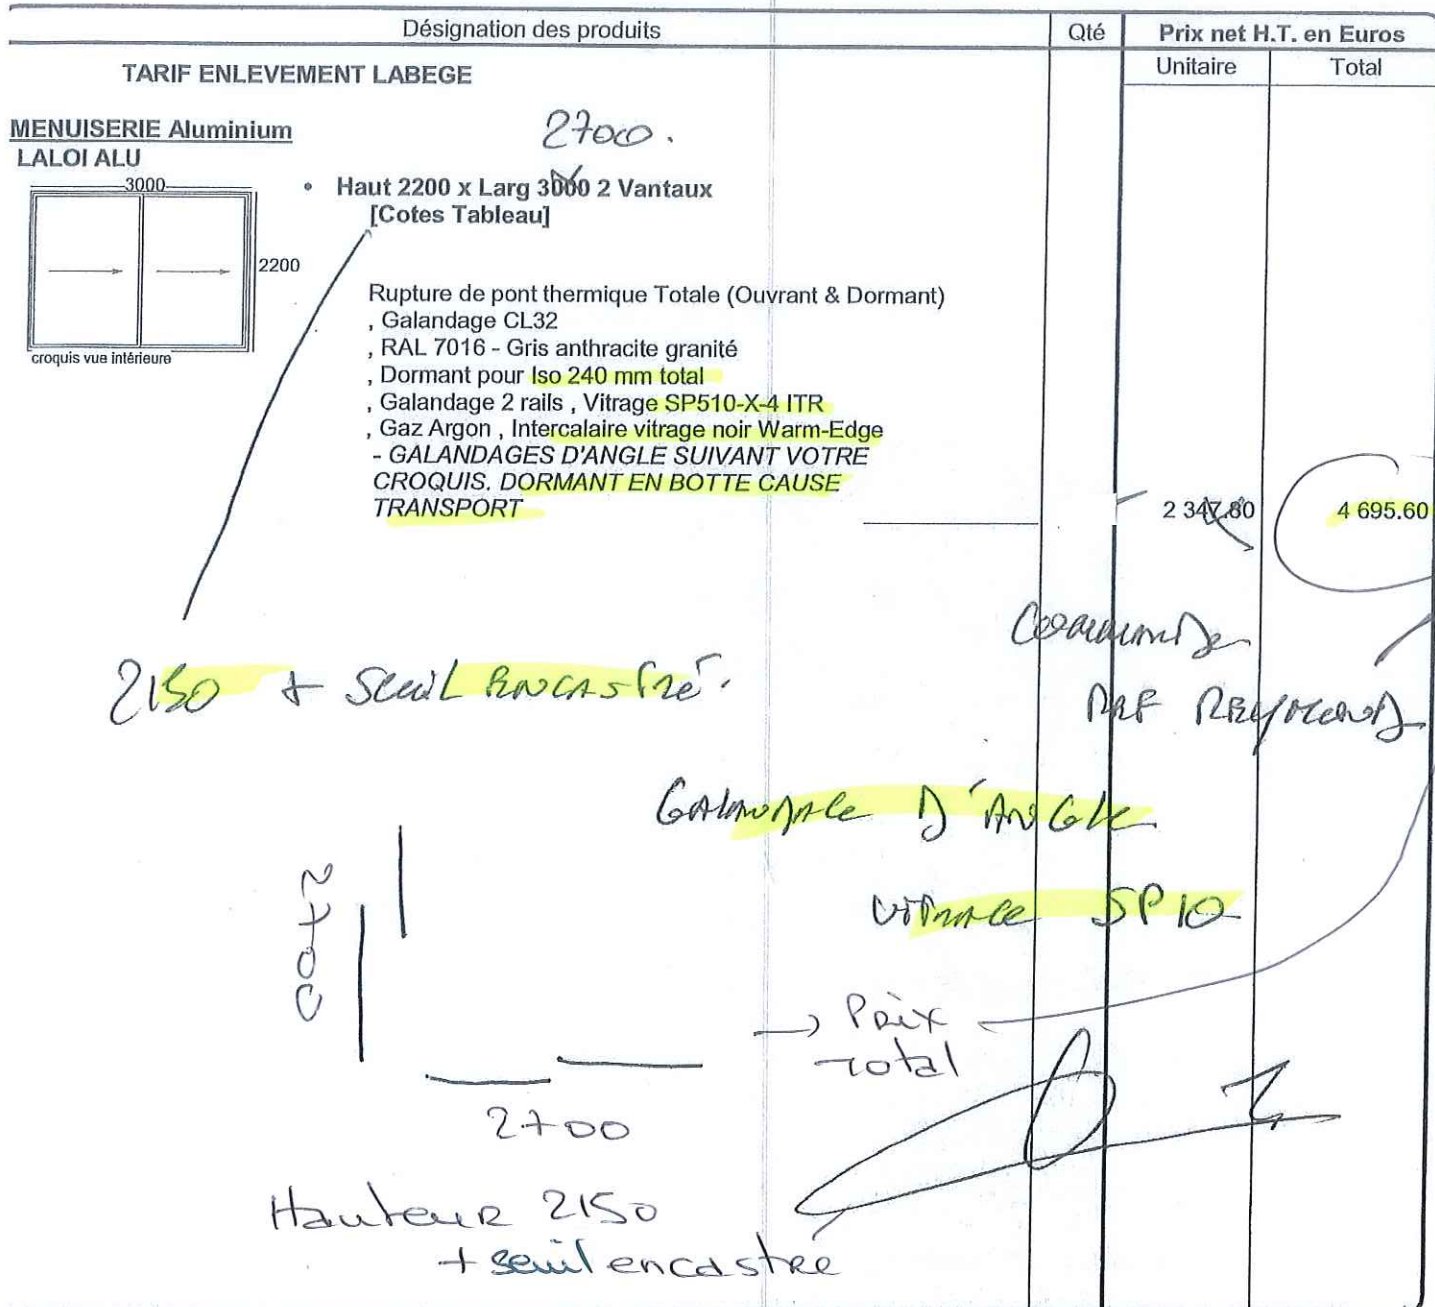 Désignation des produits Qté Prix net H.T. en Euros
Unitaire Total
TARIF ENLEVEMENT LABEGE
2700.
MENUISERIE Aluminium
LALOI ALU
3000
2200
croquis vue intérieure
• Haut 2200 x Larg 3000 2 Vantaux
[Cotes Tableau]
Rupture de pont thermique Totale (Ouvrant & Dormant)
, Galandage CL32
, RAL 7016 - Gris anthracite granité
, Dormant pour Iso 240 mm total
, Galandage 2 rails , Vitrage SP510-X-4 ITR
, Gaz Argon , Intercalaire vitrage noir Warm-Edge
- GALANDAGES D'ANGLE SUIVANT VOTRE
CROQUIS. DORMANT EN BOTTE CAUSE
TRANSPORT 2 347.80 4 695.60
Commande
2150 + SEUIL ENCASTRÉ.
REF REYMOND
GALANDAGE D'ANGLE
VITRAGE SP10
2700
→ Prix
total
2700
Hauteur 2150
+ seuil encastré